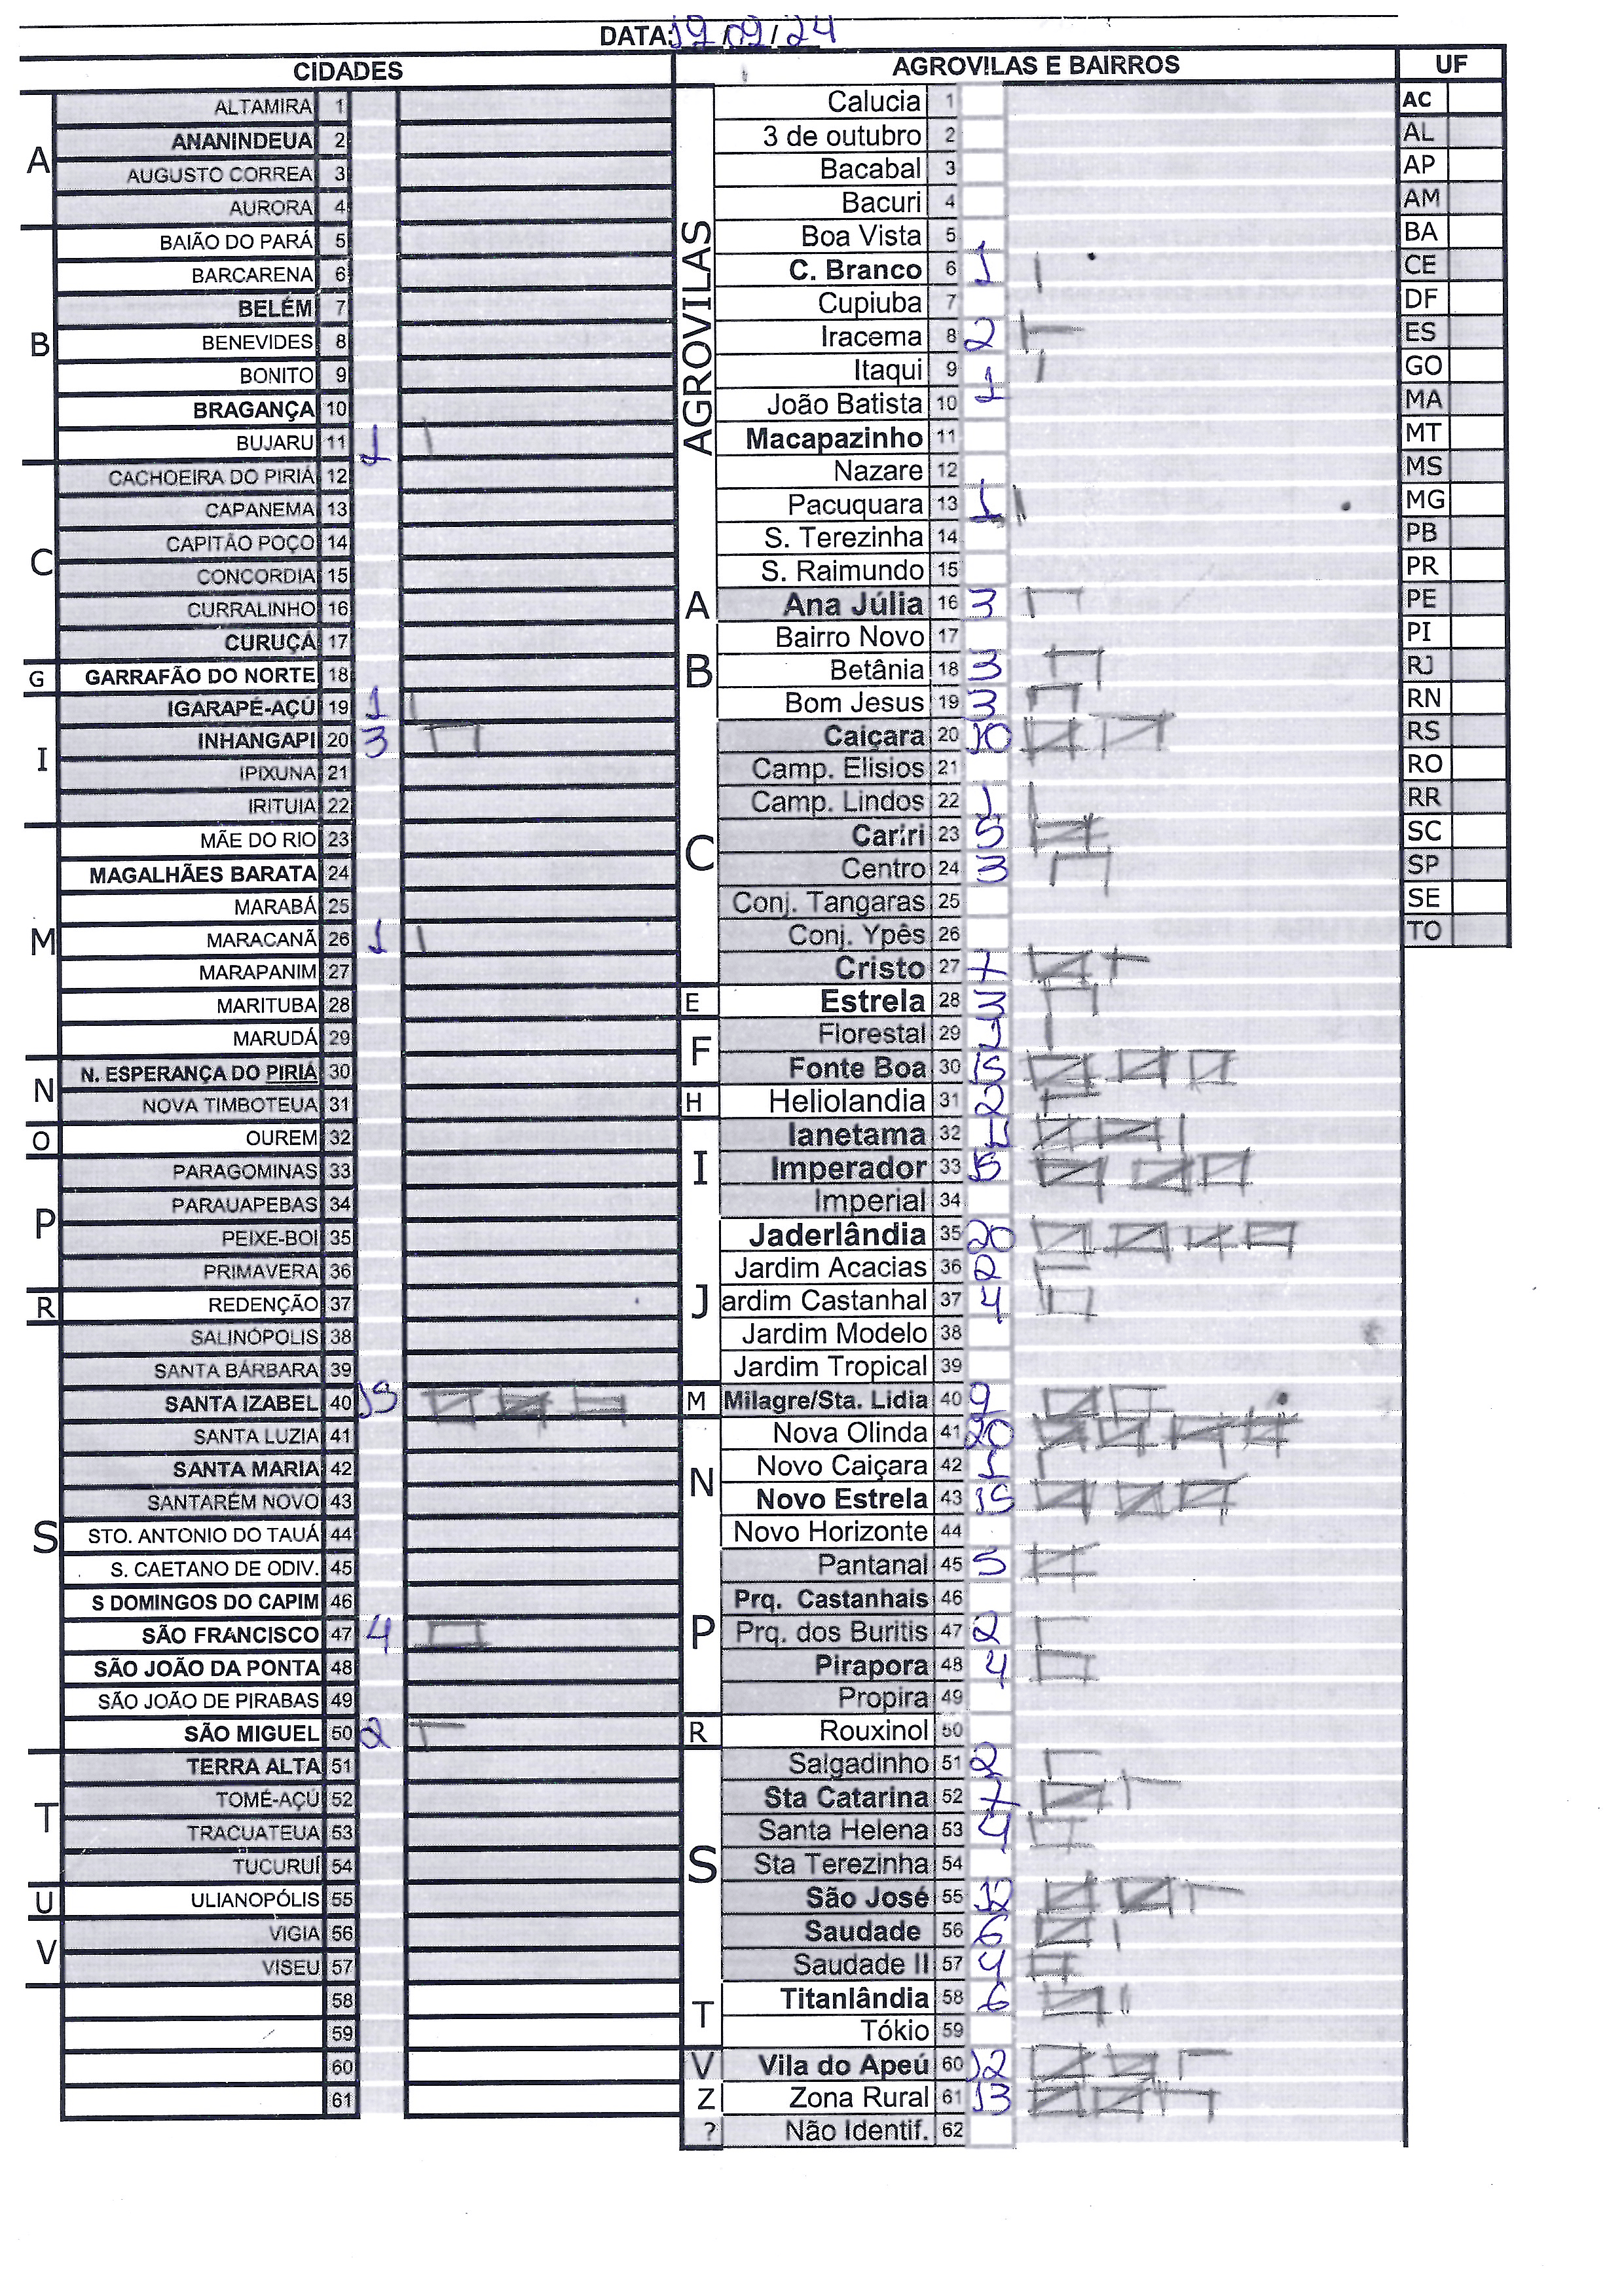 DATA: 19/09/24
CIDADES AGROVILAS E BAIRROS UF
A
ALTAMIRA 1
ANANINDEUA 2
AUGUSTO CORREA 3
AURORA 4
B
BAIÃO DO PARÁ 5
BARCARENA 6
BELÉM 7
BENEVIDES 8
BONITO 9
BRAGANÇA 10
BUJARU 11 1
C
CACHOEIRA DO PIRIÁ 12
CAPANEMA 13
CAPITÃO POÇO 14
CONCORDIA 15
CURRALINHO 16
CURUÇÁ 17
G
GARRAFÃO DO NORTE 18
I
IGARAPÉ-AÇÚ 19 1
INHANGAPI 20 3
IPIXUNA 21
IRITUIA 22
M
MÃE DO RIO 23
MAGALHÃES BARATA 24
MARABÁ 25
MARACANÃ 26 1
MARAPANIM 27
MARITUBA 28
MARUDÁ 29
N
N. ESPERANÇA DO PIRIÁ 30
NOVA TIMBOTEUA 31
O
OUREM 32
P
PARAGOMINAS 33
PARAUAPEBAS 34
PEIXE-BOI 35
PRIMAVERA 36
R
REDENÇÃO 37
S
SALINÓPOLIS 38
SANTA BÁRBARA 39
SANTA IZABEL 40
SANTA LUZIA 41
SANTA MARIA 42
SANTARÉM NOVO 43
STO. ANTONIO DO TAUÁ 44
S. CAETANO DE ODIV. 45
S DOMINGOS DO CAPIM 46
SÃO FRANCISCO 47 4
SÃO JOÃO DA PONTA 48
SÃO JOÃO DE PIRABAS 49
SÃO MIGUEL 50 2
T
TERRA ALTA 51
TOMÉ-AÇÚ 52
TRACUATEUA 53
TUCURUÍ 54
U
ULIANOPÓLIS 55
V
VIGIA 56
VISEU 57
58
59
60
61
AGROVILAS
Calucia 1
3 de outubro 2
Bacabal 3
Bacuri 4
Boa Vista 5
C. Branco 6 1
Cupiuba 7
Iracema 8 2
Itaqui 9 1
João Batista 10
Macapazinho 11
Nazare 12
Pacuquara 13 1
S. Terezinha 14
S. Raimundo 15
A
Ana Júlia 16 3
B
Bairro Novo 17
Betânia 18 3
Bom Jesus 19 3
C
Caiçara 20 10
Camp. Elisios 21
Camp. Lindos 22 1
Cariri 23 5
Centro 24 3
Conj. Tangaras 25
Conj. Ypês 26
Cristo 27 7
E
Estrela 28 3
F
Florestal 29 1
Fonte Boa 30 15
H
Heliolandia 31 2
I
Ianetama 32
Imperador 33 15
Imperial 34
J
Jaderlândia 35 20
Jardim Acacias 36 2
ardim Castanhal 37 4
Jardim Modelo 38
Jardim Tropical 39
M
Milagre/Sta. Lidia 40 9
N
Nova Olinda 41 20
Novo Caiçara 42 1
Novo Estrela 43 15
Novo Horizonte 44
P
Pantanal 45 5
Prq. Castanhais 46
Prq. dos Buritis 47 2
Pirapora 48 4
Propira 49
R
Rouxinol 50
S
Salgadinho 51 2
Sta Catarina 52 7
Santa Helena 53 4
Sta Terezinha 54
São José 55 12
Saudade 56 6
Saudade II 57 4
T
Titanlândia 58 6
Tókio 59
V
Vila do Apeú 60 12
Z
Zona Rural 61 13
?
Não Identif. 62
AC
AL
AP
AM
BA
CE
DF
ES
GO
MA
MT
MS
MG
PB
PR
PE
PI
RJ
RN
RS
RO
RR
SC
SP
SE
TO